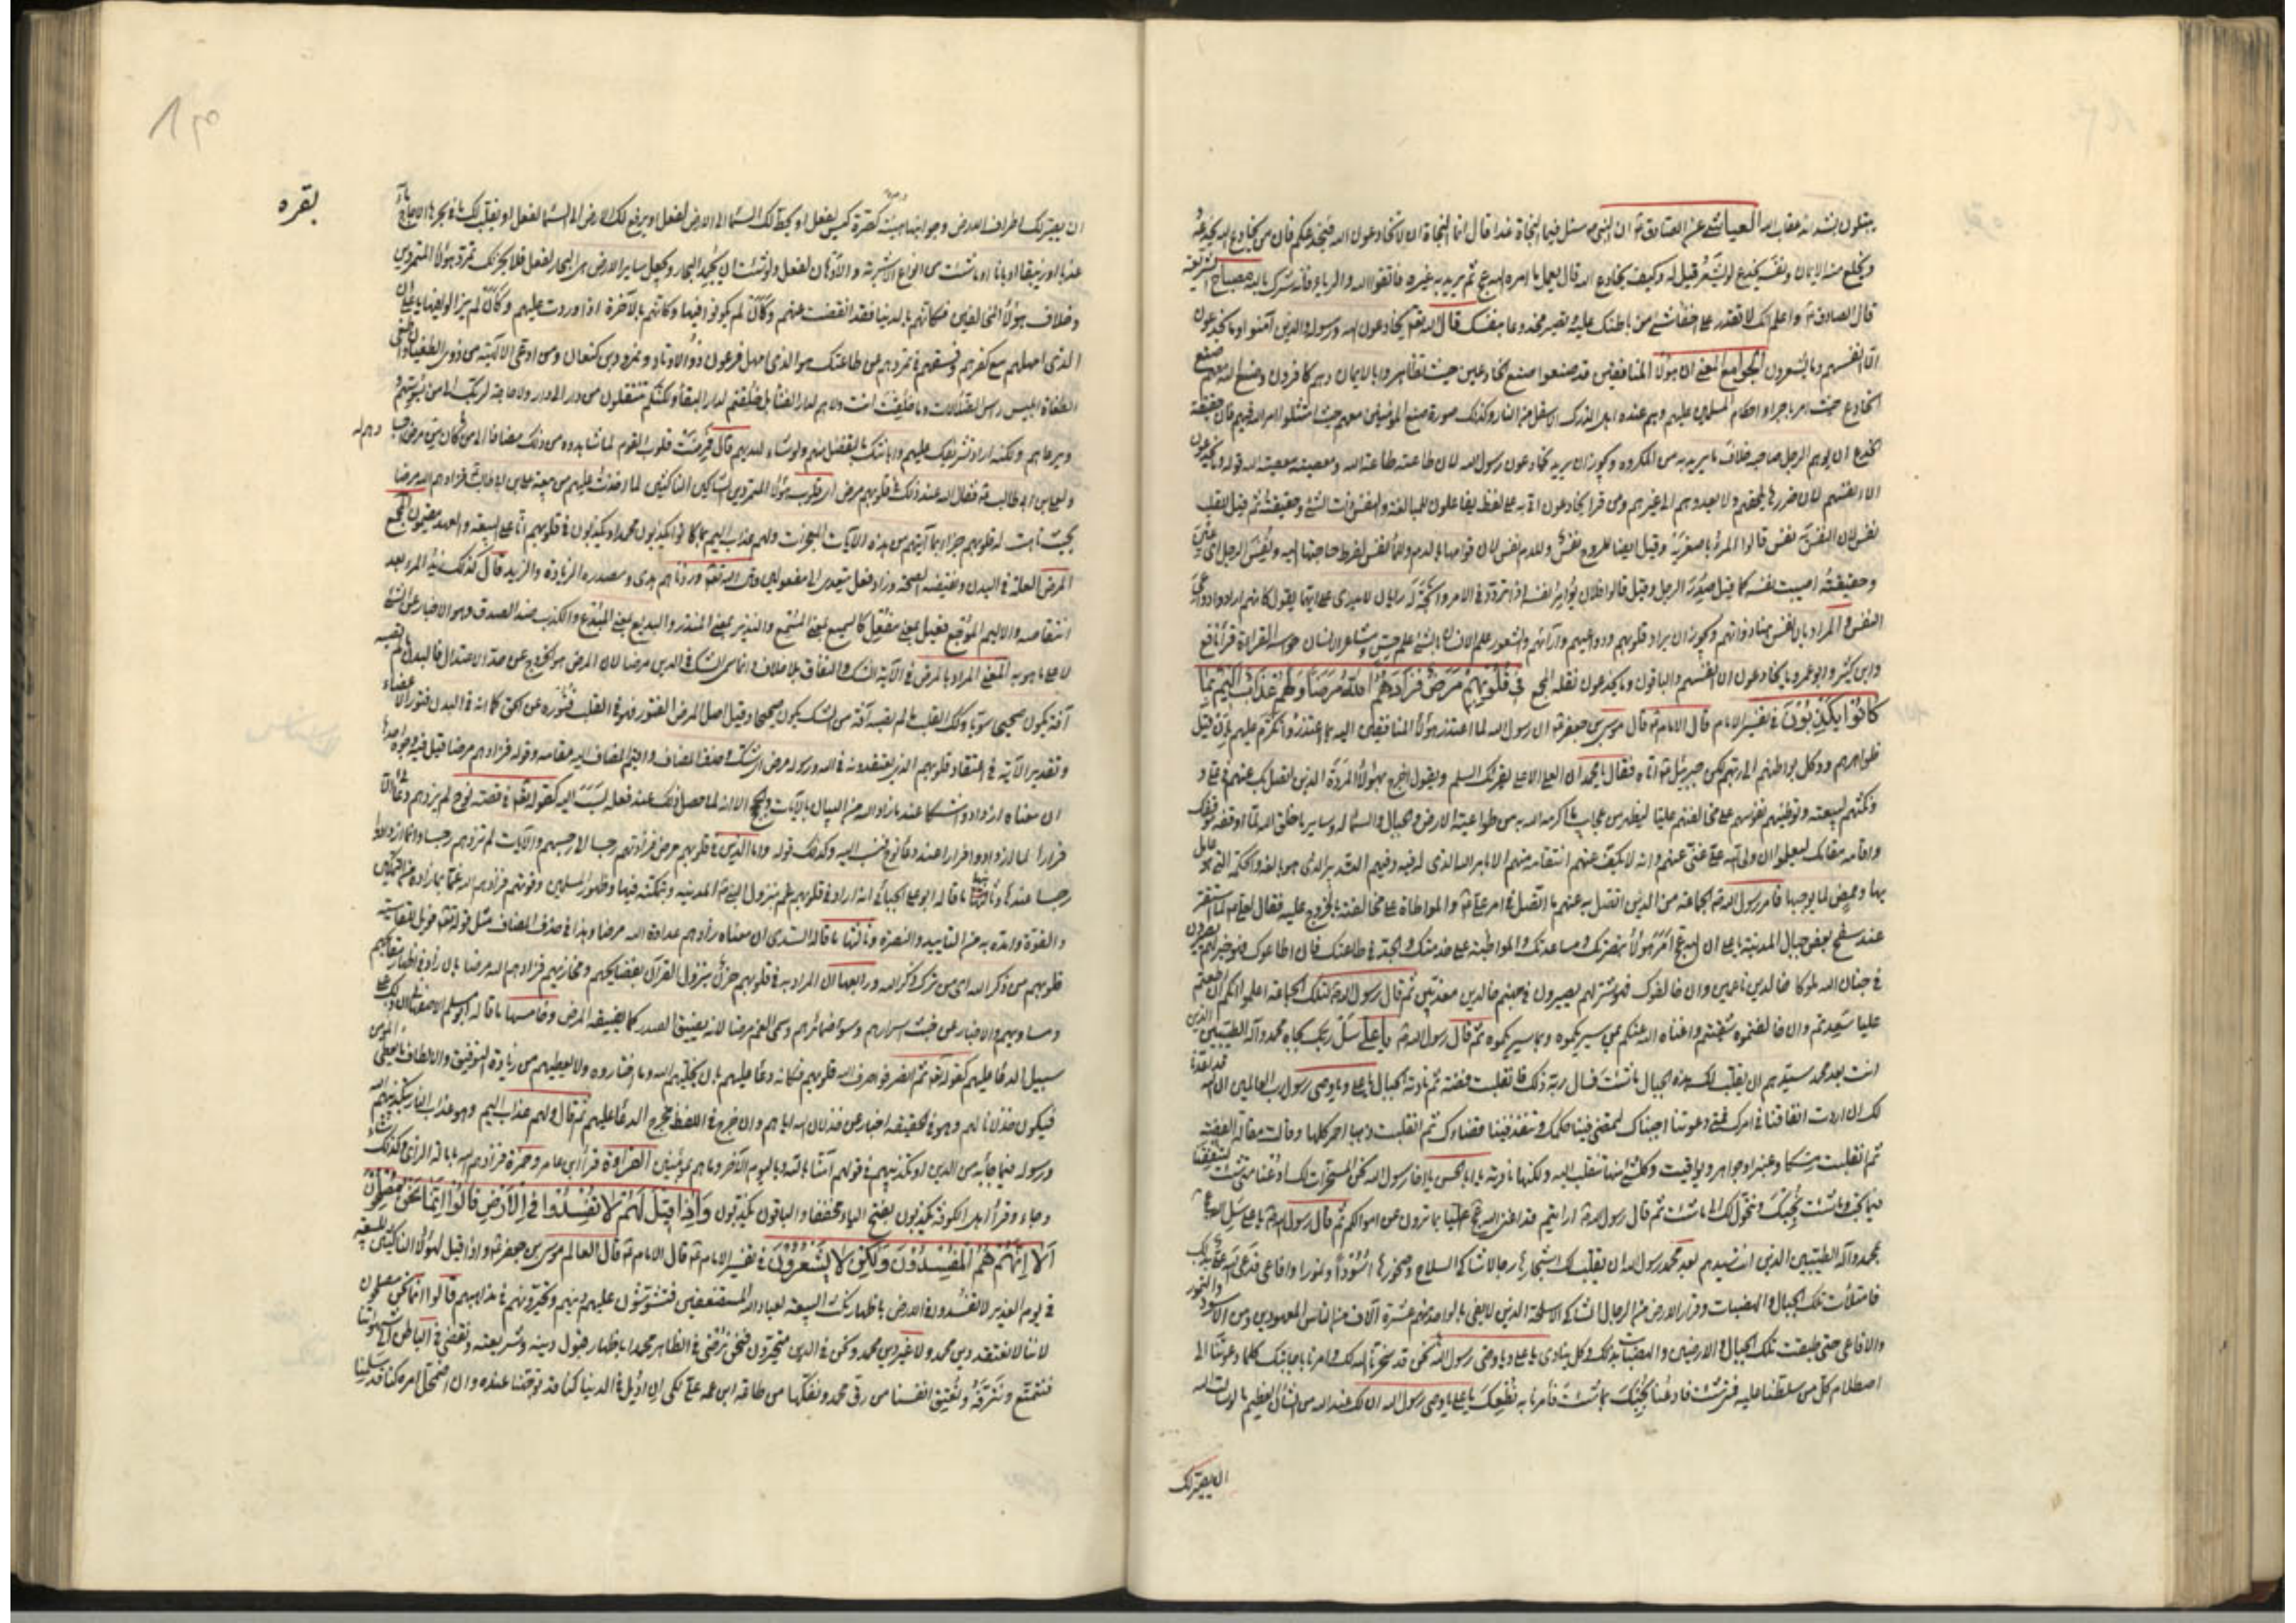 يبتلون بشدائد عقاب الله العياشي عن الصادق ع ان النبي ص سئل فيما النجاة غدا قال انما النجاة ان لا تخادعون الله فيخدعكم فان من يخادع الله يخدعه
ويخلع منه الايمان ونفسه يخدع لو يشعر قيل له وكيف يخادع الله قال يعمل بما امره الله عز وجل ثم يريد به غيره فاتقوا الله والرياء فانه شرك بالله مصباح الشريعة
قال الصادق ع واعلم انك لا تقدر على اخفاء شيء من باطنك عليه وتصير مخدوعا بنفسك قال الله تعالى يخادعون الله ورسوله والذين آمنوا وما يخدعون
الا انفسهم وما يشعرون الجوامع المعنى ان هؤلاء المنافقين قد صنعوا صنع الخادعين حيث تظاهروا بالايمان وهم كافرون وصنع الله معهم صنع
الخادع حيث امر باجراء احكام المسلمين عليهم وهم عنده اهل الدرك الاسفل من النار وكذلك صورة صنع المؤمنين معهم حيث امتثلوا امر الله فيهم فان حقيقة
الخدع ان يوهم الرجل صاحبه خلاف ما يريد به من المكروه ويجوز ان يريد يخادعون رسول الله لان طاعته طاعة الله ومعصيته معصية الله قوله وما يخدعون
الا انفسهم لان ضررها يلحقهم ولا يعدوهم الى غيرهم ومن قرا يخادعون اتى به على لفظ يفاعلون للمبالغة والنفس ذات الشيء وحقيقته ثم قيل للقلب
نفس لان النفس به نفس قالوا المرء باصغريه وقيل ايضا للروح نفس وللدم نفس لان قوامها بالدم وللماء نفس لفرط حاجتها اليه ونفس الرجل اى عين
وحقيقته اصيبت نفسه كما قيل صدر الرجل وقيل قالوا فلان يؤامر نفسه اذا تردد في الامر واتجه له رايان لا يدرى على ايهما يقول كانهم ارادوا داعي
النفس والمراد بالانفس هنا ذواتهم ويجوز ان يراد قلوبهم ودواعيهم وآرائهم والشعور علم الانسان بالشيء علم حس ومشاعر الانسان حواسه القراءة قرأ نافع
وابن كثير وابو عمرو وما يخادعون الا انفسهم والباقون وما يخدعون نقله المجمع في قُلُوبِهِمْ مَرَضٌ فَزَادَهُمُ اللّهُ مَرَضًا وَلَهُمْ عَذَابٌ اَلِيمٌ بِمَا
كَانُوا يَكْذِبُونَ في تفسير الامام قال الامام ع قال موسى بن جعفر ع ان رسول الله لما اعتذر هؤلاء المنافقين اليه بما اعتذروا تكرم عليهم بان قبل
ظواهرهم ووكل بواطنهم الى ربهم لكن جبرئيل ع اتاه فقال يا محمد ان العلي الاعلى يقرئك السلم ويقول اخرج بهؤلاء المردة الذين اتصل بك عنهم في علي و
نكثهم لبيعته وتوطينهم نفوسهم على مخالفتهم عليا ليظهر من عجايب ما اكرمه الله به من طواعية الارض والجبال والسماء له وساير ما خلق الله لما اوقفه موقفك
واقامه مقامك ليعلموا ان ولي الله علي غني عنهم وانه لا يكف عنهم انتقامه منهم الا بامر الله الذى له فيه وفيهم التدبير الذى هو بالغه والحكمة التي هو عامل
بها وممض لما يوجبها فامر رسول الله ص الجماعة من الذين اتصل به عنهم ما اتصل في امر علي ع والمواطاة على مخالفته بالخروج عليه فقال لعلي ع لما استقر
عند سفح بعض جبال المدينة يا علي ان الله عز وجل امر هؤلاء بنصرتك ومساعدتك والمواظبة على خدمتك والجد في طاعتك فان اطاعوك فهو خير لهم يصيرون
في جنان الله ملوكا خالدين ناعمين وان خالفوك فهو شر لهم يصيرون في جهنم خالدين معذبين ثم قال رسول الله ص لتلك الجماعة اعلموا انكم ان اطعتم
عليا سعدتم وان خالفتموه شقيتم واغناه الله عنكم بمن سيريكموه وبما سيريكموه ثم قال رسول الله ص يا علي سل ربك بجاه محمد وآله الطيبين الذين
انت بعد محمد سيدهم ان يقلب لك هذه الجبال ما شئت فسال ربه ذلك فانقلبت فضة ثم نادته الجبال يا علي ويا وصي رسول رب العالمين ان الله قد اعدنا
لك ان اردت انفاقنا في امرك فمتى دعوتنا اجبناك لتمضي فينا حكمك وتنفذ فينا قضاءك ثم انقلبت ذهبا احمر كلها وقالت مقالة الفضة
ثم انقلبت مسكا وعنبرا وجواهر ويواقيت وكل شيء منها تنقلب اليه ولكنها نادته يا ابا الحسن يا اخا رسول الله نحن المسخرات لك ادعنا متى شئت لتنفقنا
فيما شئت نجبك ونتحول لك الى ما شئت ثم قال رسول الله ص ارايتم قد اغنى الله عز وجل عليا بما ترون عن اموالكم ثم قال رسول الله ص يا علي سل الله عز وجل
بمحمد وآله الطيبين الذين انت سيدهم بعد محمد رسول الله ان يقلب لك اشجارها رجالا شاكي السلاح وصخورها اسودا ونمورا وافاعي فدعى الله علي بذلك
فامتلات تلك الجبال والهضبات وقرار الارض من الرجال الشاكي الاسلحة الذين لا يفي بالواحد منهم عشرة آلاف من الناس المعهودين ومن الاسود والنمور
والافاعي حتى طبقت تلك الجبال والارضين والهضبات بذلك وكل ينادى يا علي ويا وصي رسول الله نحن قد سخرنا الله لك وامرنا باجابتك كلما دعوتنا الى
اصطلام كل من سلطتنا عليه فمتى شئت فادعنا نجبك بما شئت فأمرنا به نطعك يا علي يا وصي رسول الله ان لك عند الله من الشأن العظيم ما لو سالت الله
ان يصير لك
بقره
ان يصير لك اطراف الارض وجوانبها هيئة كصرة كيس لفعل او يحط لك السماء الى الارض لفعل او يرفع لك الارض الى السماء لفعل او يقلب لك ما في بحرها الاجاج ماء
عذبا او زيبقا او بانا او ما شئت من انواع الاشربة والادهان لفعل ولو شئت ان يجمد البحار ويجعل ساير الارض هي البحار لفعل فلا يحزنك تمرد هؤلاء المتمردين
وخلاف هؤلاء المخالفين فكانهم بالدنيا فقد انقضت عنهم وكأن لم يكونوا فيها وكانهم بالآخرة اذا وردت عليهم وكأن لم يزالوا فيها يا علي ان
الذى امهلهم مع كفرهم وفسقهم في تمردهم عن طاعتك هو الذى امهل فرعون ذو الاوتاد ونمرود بن كنعان ومن ادعى الالهية من ذوى الطغيان واطغى
الطغاة ابليس راس الضلالات وما خلقت انت ولا هم لدار الفناء بل خلقتم لدار البقاء ولكنكم تنتقلون من دار الى دار ولا حاجة لربك الى من يسوسهم
ويرعاهم ولكنه اراد تشريفك عليهم وابانتك بالفضل منهم ولو شاء لهديهم قال فمرضت قلوب القوم لما شاهدوه من ذلك مضافا الى ما كان من مرض
وله
ولعلي بن ابى طالب ع فقال الله عند ذلك في قلوبهم مرض اى قلوب هؤلاء المتمردين الشاكين الناكثين لما اخذت عليهم من بيعة علي بن ابى طالب فزادهم الله مرضا
بحيث تاهت له قلوبهم جزاء بما اريتهم من هذه الآيات المعجزات ولهم عذاب اليم بما كانوا يكذبون محمدا ويكذبون في قولهم انا على البيعة والعهد مقيمون المجمع
المرض العلة في البدن ونقيضه الصحة وزاد فعل يتعدى الى مفعولين وقال الله تعالى وزدناهم هدى ومصدره الزيادة والزيد قال كذلك زيد المرء بعد
انتقاصه والاليم الموجع فعيل بمعنى مفعل كالسميع بمعنى المسمع والنذير بمعنى المنذر والبديع بمعنى المبتدع والكذب ضد الصدق وهو الاخبار عن الشيء
لا على ما هو به المعنى المراد بالمرض في الآية الشك والنفاق بلا خلاف وانما سمى الشك في الدين مرضا لان المرض هو الخروج عن حد الاعتدال فالبدن ما لم تصبه
آفة يكون صحيحا سويا وكذلك القلب ما لم يصبه آفة من الشك يكون صحيحا وقيل اصل المرض الفتور فهو في القلب فتوره عن الحق كما انه في البدن فتور الاعضاء
وتقدير الآية في اعتقاد قلوبهم الذى يعتقدونه في الله ورسوله مرض اى شك حذف المضاف واقيم المضاف اليه مقامه وقوله فزادهم الله مرضا قيل فيه وجوه احدها
ان معناه ازدادوا شكا عند ما زاد الله من البيان بالآيات والحجج الا انه لما حصل ذلك عند فعله نسب اليه كقوله تعالى في قصة نوح لم يزدهم دعائي الا
فرارا لما ازدادوا فرارا عند دعاء نوح نسب اليه وكذلك قوله واما الذين في قلوبهم مرض فزادتهم رجسا الى رجسهم والآيات لم تزدهم رجسا وانما ازدادوا
رجسا عندها وثانيها ما قاله ابو علي الجبائي انه اراد في قلوبهم غم بنزول النبي ص المدينة وبتمكنه فيها وظهور المسلمين وقوتهم فزادهم الله غما بما زاده من التمكين
والقوة وامده به من التاييد والنصرة وثالثها ما قاله السدى ان معناه زادهم عداوة الله مرضا وهذا في حذف المضاف مثل قوله تعالى فويل للقاسية
قلوبهم من ذكر الله اى من ترك ذكر الله ورابعها ان المراد به في قلوبهم حزن بنزول القرآن بفضائحهم ومخازيهم فزادهم الله مرضا بان زاد في اظهار مقابحهم
ومساويهم والاخبار عن خبث اسرارهم وسوء ضمائرهم وسمى الغم مرضا لانه يضيق الصدر كما يضيقه المرض وخامسها ما قاله ابو مسلم الاصفهاني ان ذلك على
سبيل الدعاء عليهم كقوله تعالى ثم انصرفوا صرف الله قلوبهم فكانه دعاء عليهم بان يخليهم الله وما اختاروه ولا يعطيهم من زيادة التوفيق والالطاف ما يعطى المؤمنين
فيكون خذلانا لهم وهو في الحقيقة اخبار عن خذلان الله اياهم وان خرج في اللفظ مخرج الدعاء عليهم ثم قال ولهم عذاب اليم وهو عذاب النار بتكذيبهم الله
ورسوله فيما جاء به من الدين او بكذبهم في قولهم آمنا بالله وباليوم الآخر وما هم بمؤمنين القراءة قرأ ابن عامر وحمزة فزادهم الله بامالة الزاى وكذلك شاء
وجاء وقرأ اهل الكوفة يكذبون بفتح الياء مخففا والباقون يكذبون وَاِذَا قِيلَ لَهُمْ لَا تُفْسِدُوا فِي الْاَرْضِ قَالُوا اِنَّمَا نَحْنُ مُصْلِحُونَ
اَلَا اِنَّهُمْ هُمُ الْمُفْسِدُونَ وَلَكِنْ لَا يَشْعُرُونَ في تفسير الامام ع قال الامام ع قال العالم موسى بن جعفر ع واذا قيل لهؤلاء الناكثين للبيعة
في يوم الغدير لا تفسدوا في الارض باظهار نكث البيعة لعباد الله المستضعفين فتشوشون عليهم دينهم وتحيرونهم في مذاهبهم قالوا انما نحن مصلحون
لاننا لا نعتقد دين محمد ولا غير دين محمد ونحن في الدين متحيرون فنحن نرضى في الظاهر محمدا باظهار قبول دينه وشريعته ونقضي في الباطن الى شهواتنا
فنتمتع ونترفه ونعتق انفسنا من رق محمد ونفكها من طاعة ابن عمه علي لكي ان اديل في الدنيا كنا قد توجهنا عنده وان اضمحل امره كنا قد سلمنا